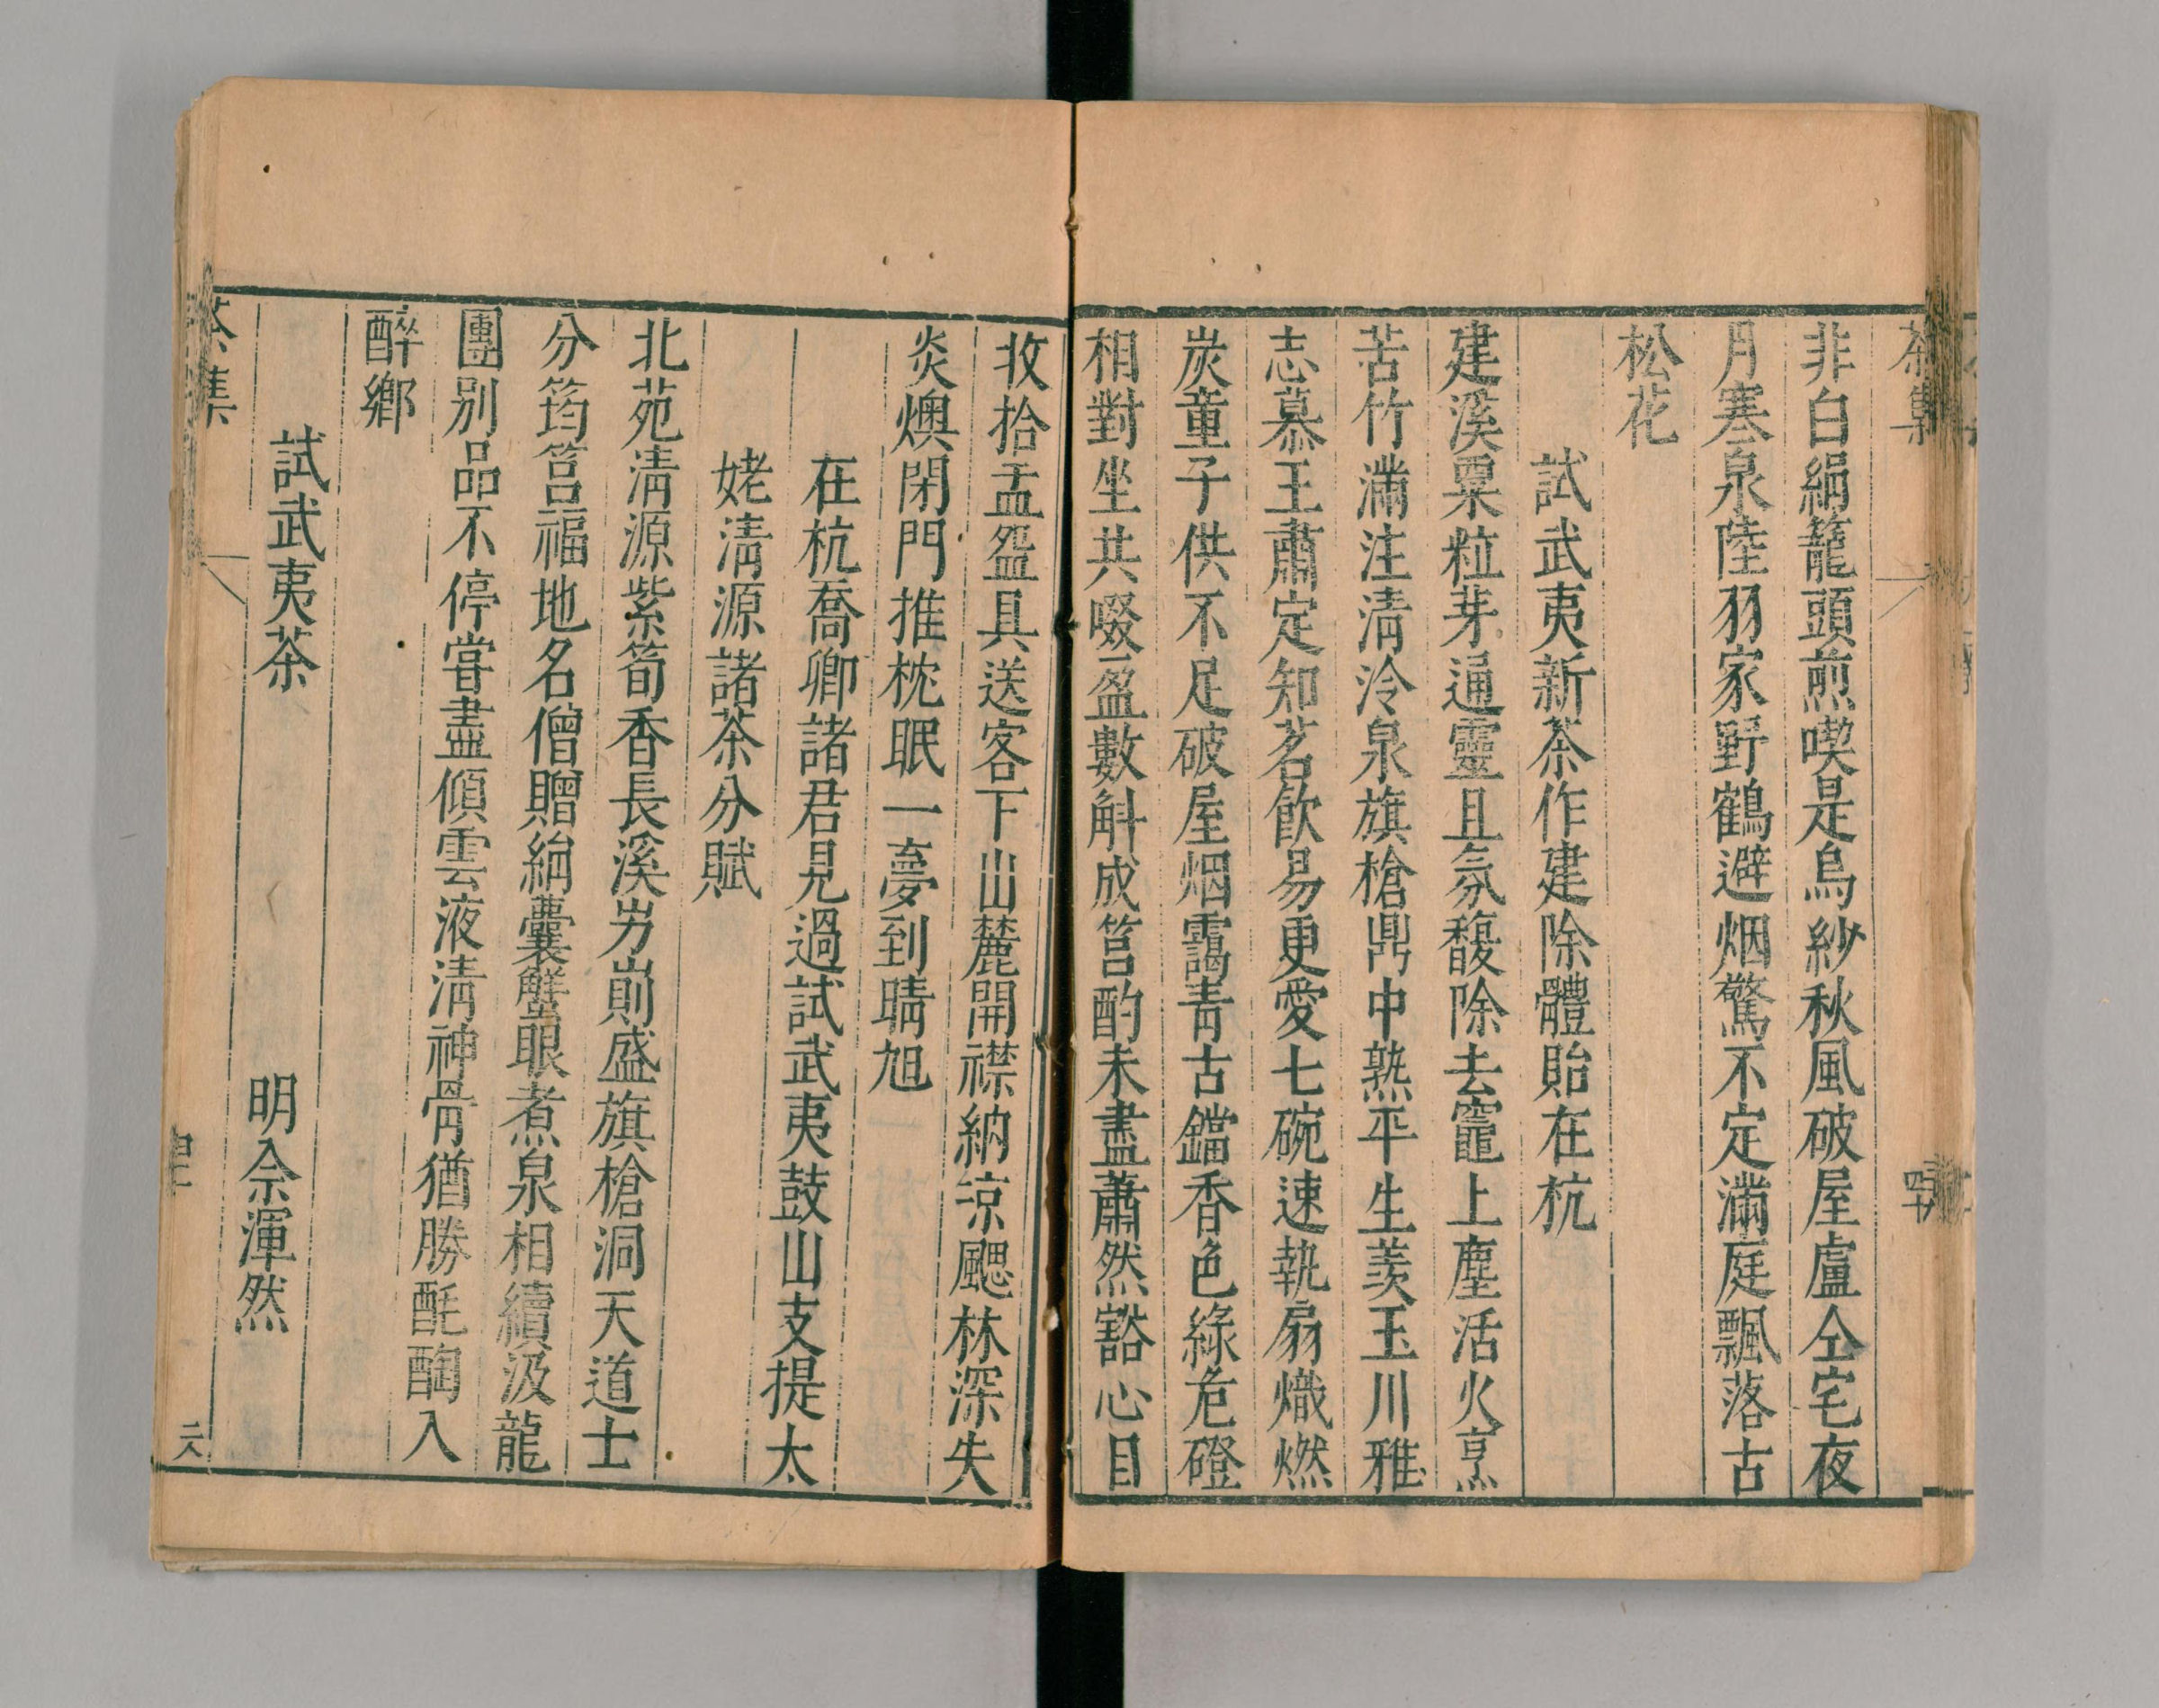 茶集
非白絹籠頭煎喫是烏紗秋風破屋盧仝宅夜
月寒泉陸羽家野鶴避烟驚不定滿庭飄落古
松花
試武夷新茶作建除體貽在杭
建溪粟粒芽通靈且氛馥除去竈上塵活火烹
苦竹滿注清泠泉旗槍鼎中熟平生羨玉川雅
志慕王肅定知茗飲易更愛七碗速執扇熾燃
炭童子供不足破屋烟靄青古鐺香色綠危磴
相對坐共啜盈數斛成筥酌未盡蕭然豁心目
收拾盂盌具送客下山麓開襟納凉颸林深失
炎燠閉門推枕眠一夢到晴旭
在杭喬卿諸君見過試武夷鼓山支提太
姥清源諸茶分賦
北苑清源紫筍香長溪屴崱盛旗槍洞天道士
分筠筥福地名僧贈絹囊蟹眼煮泉相續汲龍
團別品不停嘗盡傾雲液清神骨猶勝酕醄入
醉鄉
試武夷茶
明佘渾然
茶集